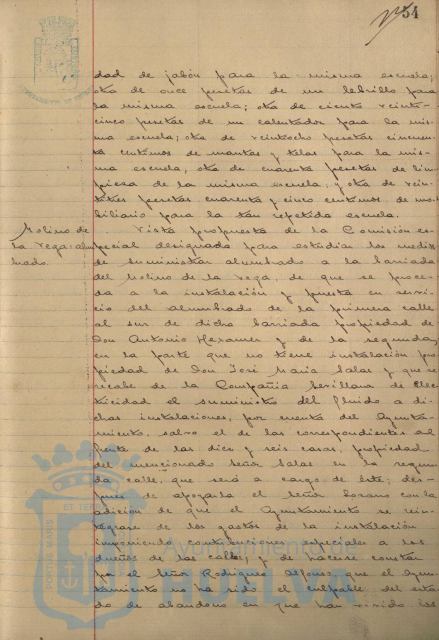 54
dad de jabón para la misma escuela;
otra de once pesetas de un lebrillo para
la misma escuela; otra de ciento veinti-
cinco pesetas de un calentador para la mis-
ma escuela; otra de veintiocho pesetas cincuen-
ta céntimos de mantas y telas para la mis-
ma escuela, otra de cuarenta pesetas de lim-
pieza de la misma escuela, y otra de vein-
titres pesetas cuarenta y cinco centimos, de mo-
biliario para la tan repetida escuela.
Molino de
la Vega: alum
brado.
Vista propuesta de la Comisión es-
pecial designada para estudiar los medios
de suministrar alumbrado a la barriada
del Molino de la Vega, de que se proce-
da a la instalación y puesta en servi-
cio del alumbrado de la primera calle
al sur de dicha barriada propiedad de
Don Antonio y de la segunda,
en la parte que no tiene instalación pro-
piedad de Don José Maria Salas y que se
recabe de la Compañia Sevillana de Elec-
tricidad el suministro del fluido a di-
chas instalaciones, por cuenta del Ayunta-
miento, salvo el de las correspondientes al
frente de las diez y seis casas, propiedad
del mencionado Señor Salas en la segun-
da calle, que será a cargo de éste; des-
pues de apoyarla el Señor con la
adición de que el Ayuntamiento se rein-
tegrase de los gastos de la instalación
imponiendo contribuciones especiales a los
dueños de las calles; y de hacerse constar
por el Señor Rodriguez Alfonso, que el Ayun-
tamiento no ha sido el culpable del esta-
do de abandono en que han vivido los
Ayuntamiento
HUELVA
PORTUS MARIS
ET TERRAE